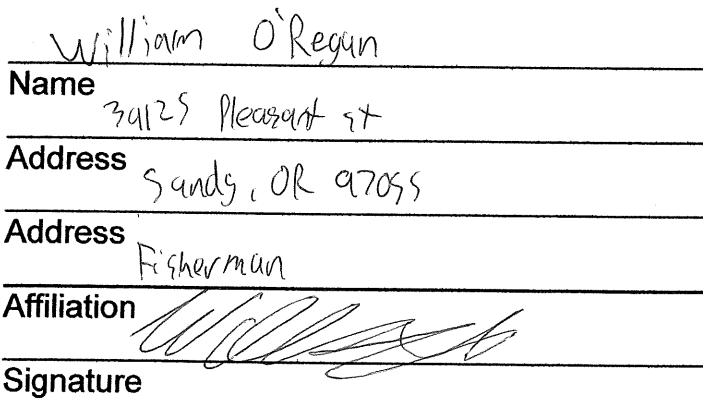 William O'Regan
Name
39125 Pleasant st
Address
Sandy, OR 97055
Address
Fisherman
Affiliation
Signature